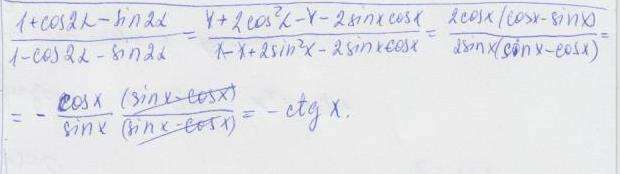 (1+cos2α−sin2α)/(1−cos2α−sin2α) = (1+2cos²α−1−2sinxcosx)/(1−1+2sin²x−2sinxcosx) = (2cosx(cosx−sinx))/(2sinx(sinx−cosx)) =
= − (cosx)/(sinx) (sinx−cosx)/(sinx−cosx) = −ctg x.